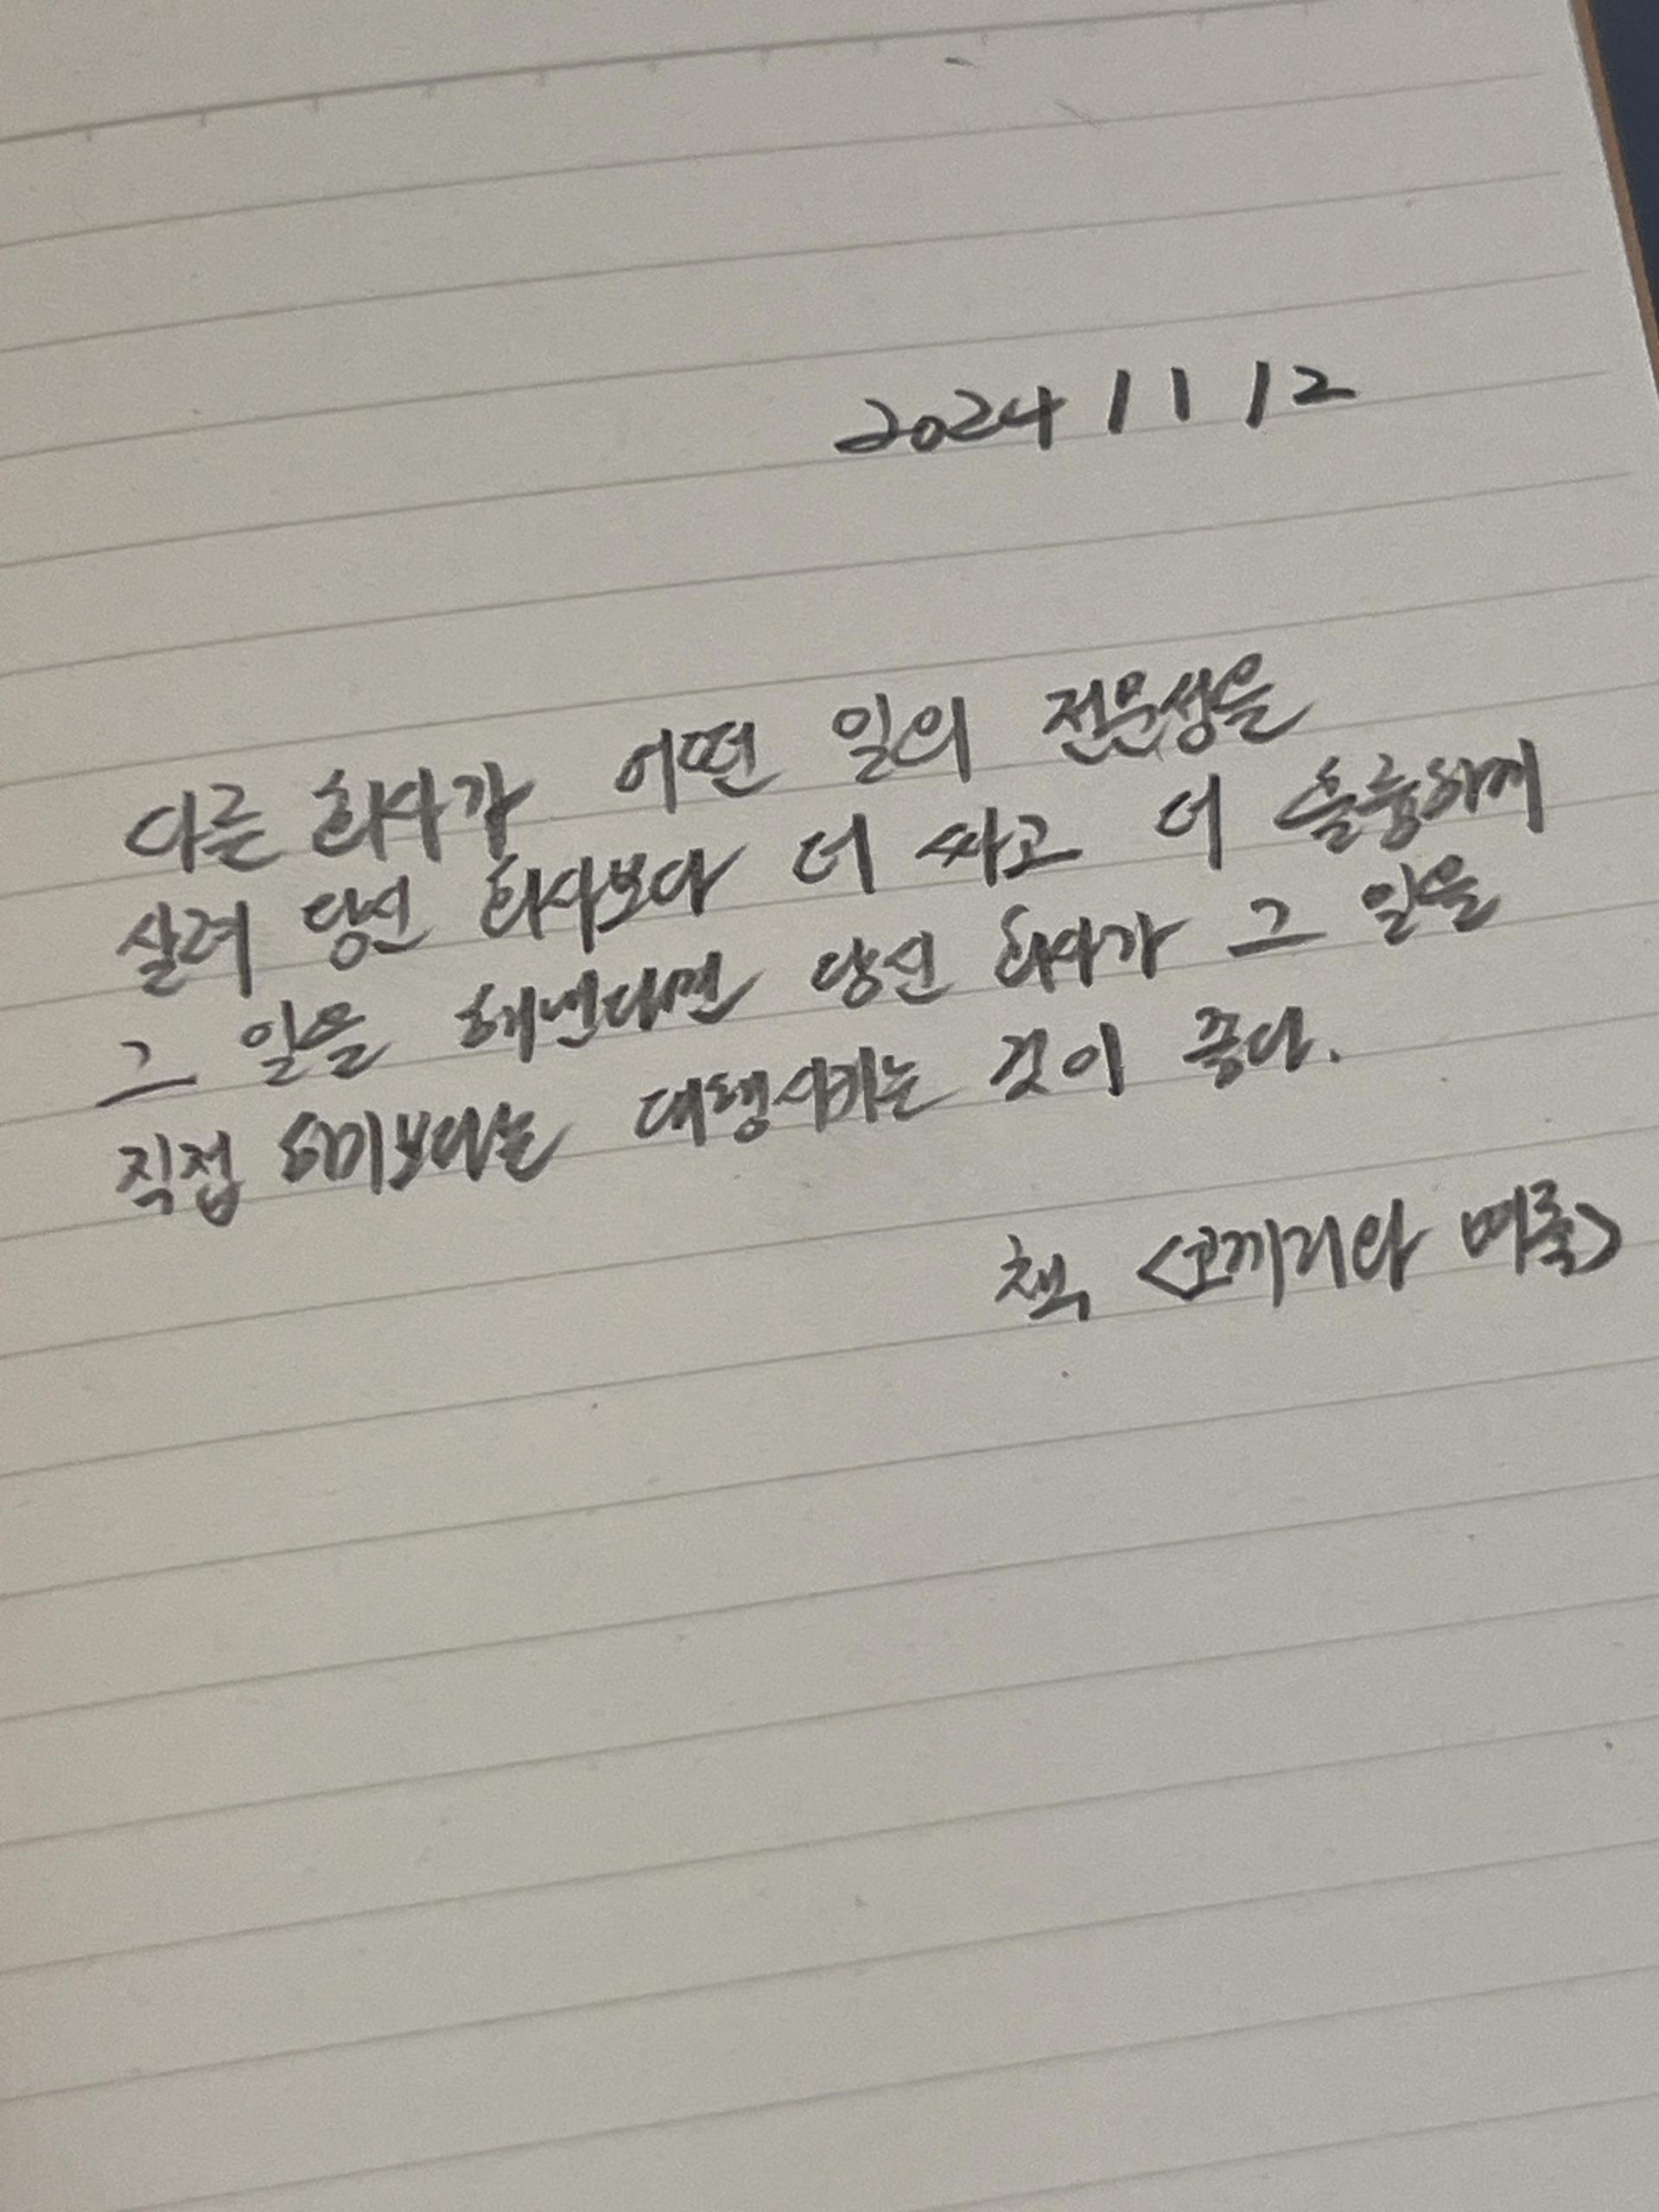 2024 11 12
다른 회사가 어떤 일의 전문성을
살려 당신 회사보다 더 싸고 더 훌륭하게
그 일을 해낸다면 당신 회사가 그 일을
직접 하기보다는 대행시키는 것이 좋다.
책 <코끼리와 벼룩>